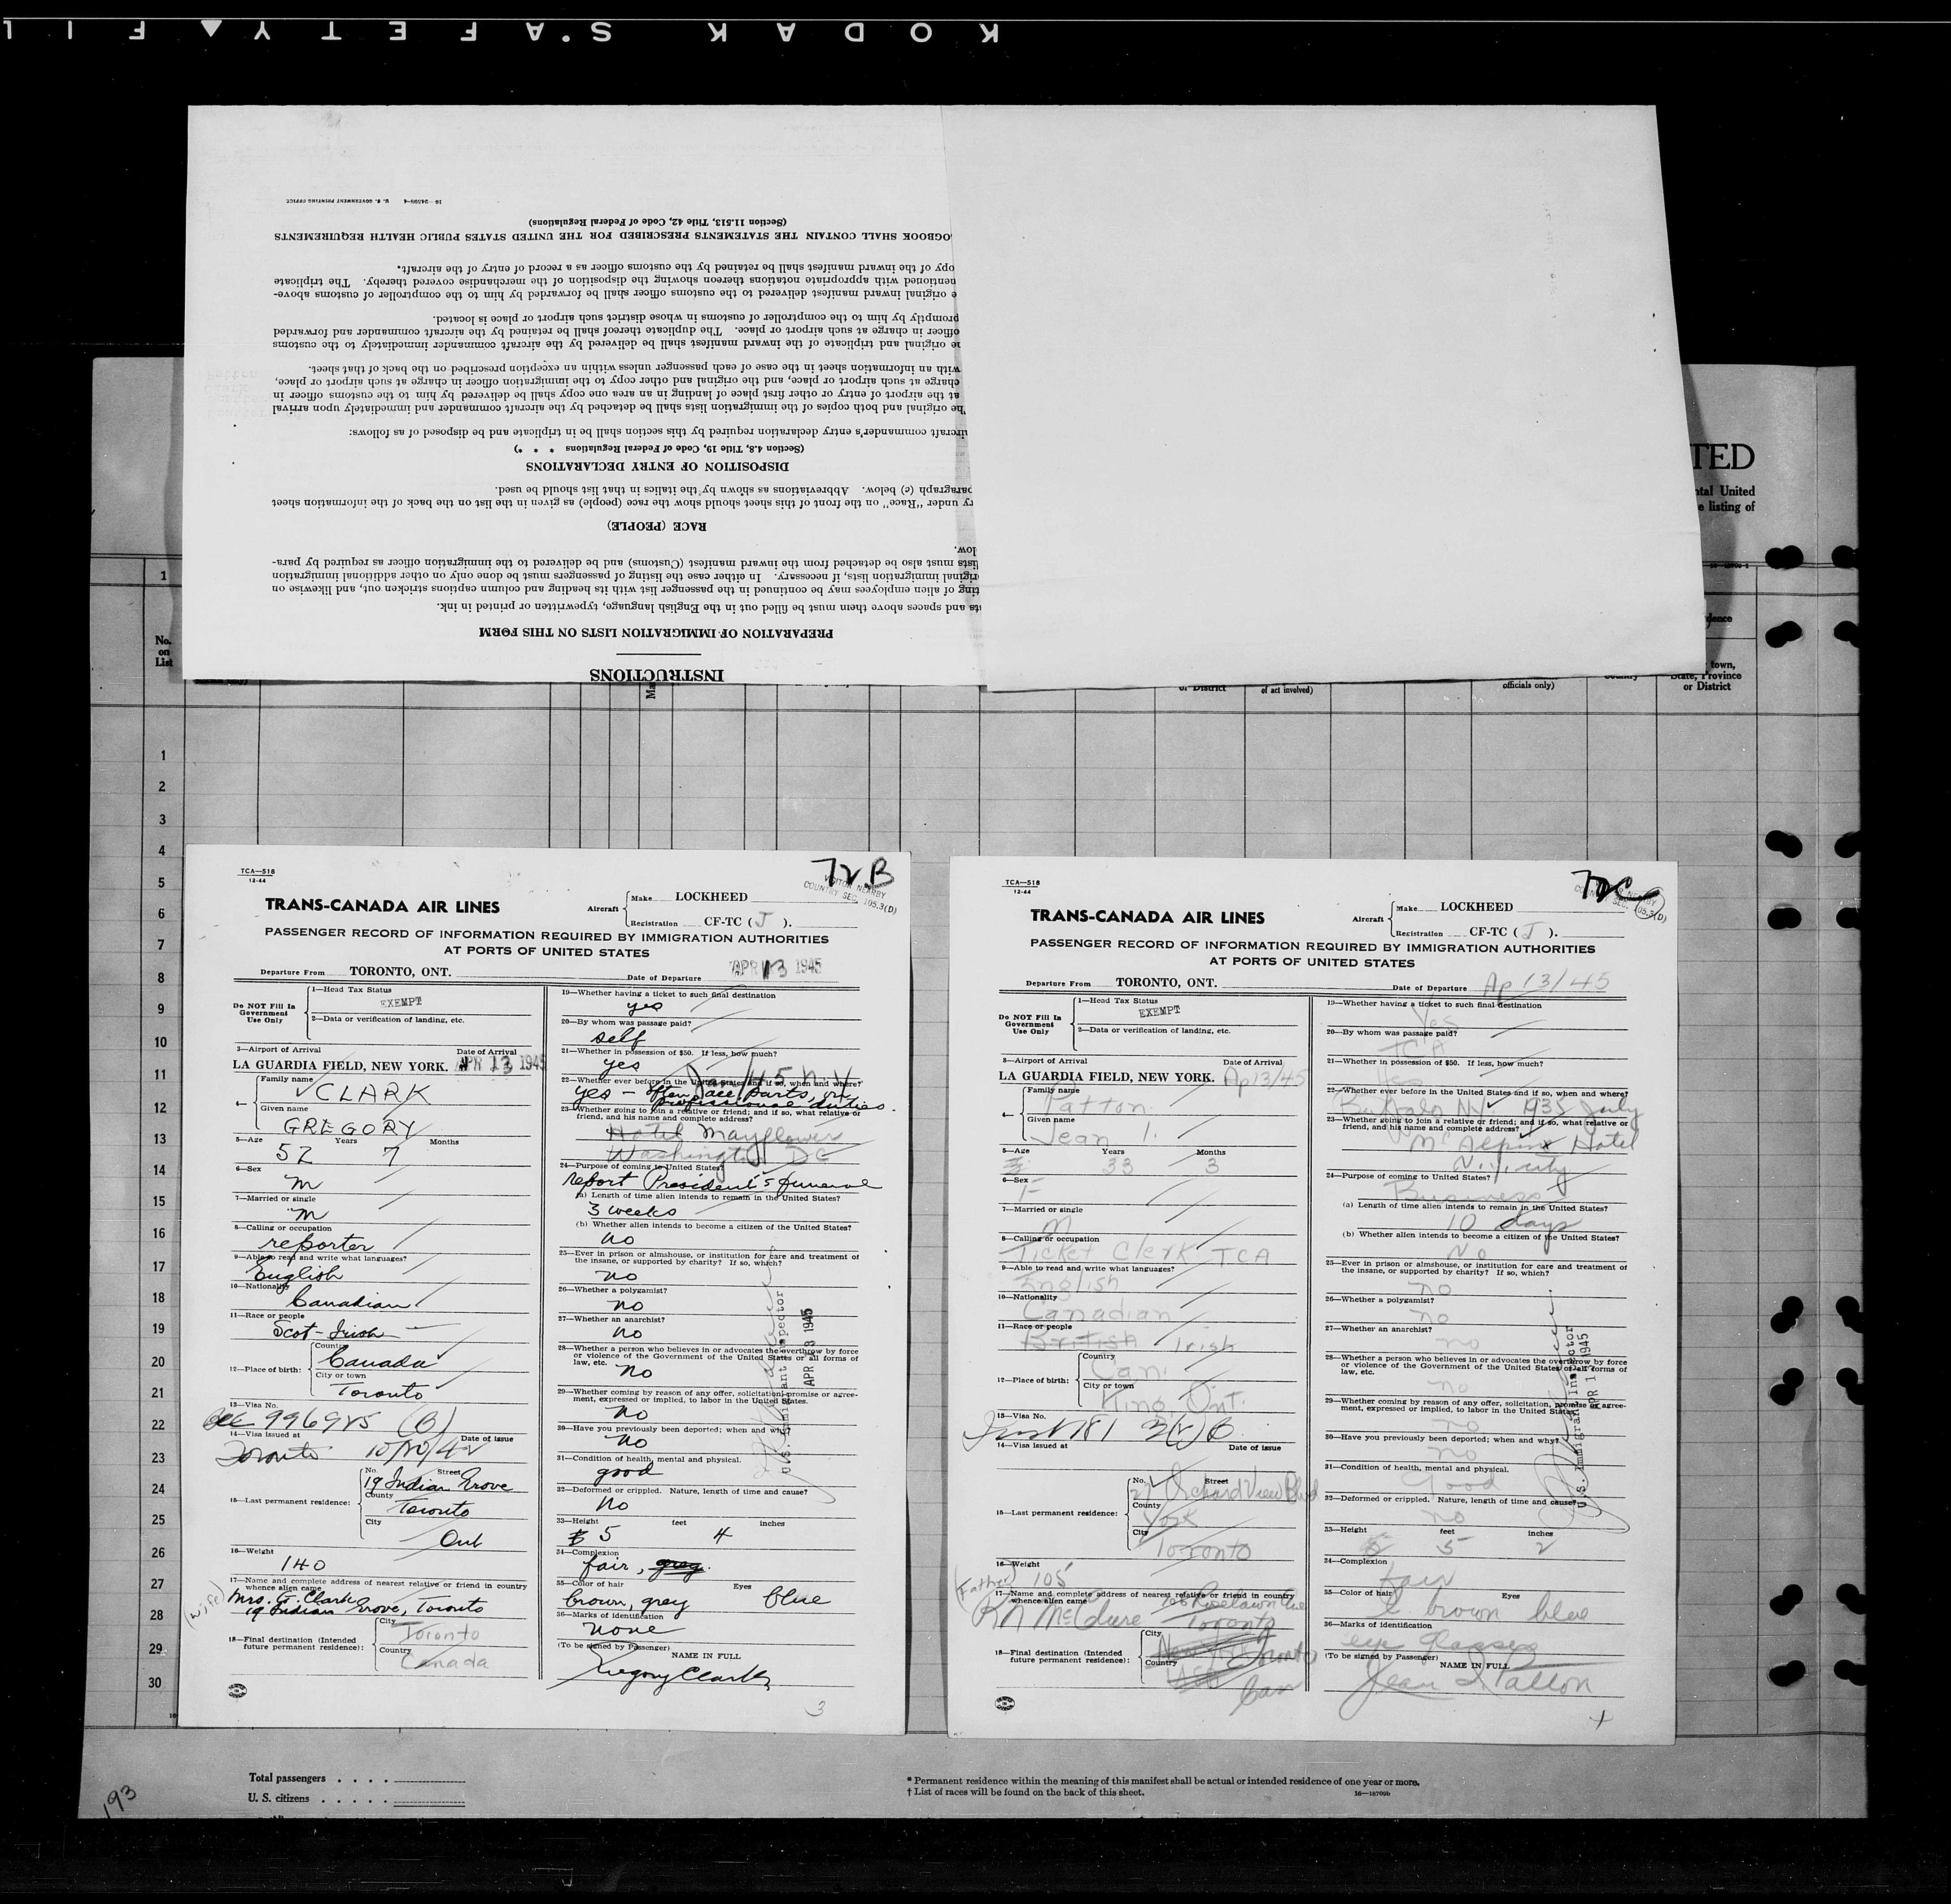 KODAK S'AFETY FIL
16—24598-4 U. S. GOVERNMENT PRINTING OFFICE
(Section 11.513, Title 42, Code of Federal Regulations)
OGBOOK SHALL CONTAIN THE STATEMENTS PRESCRIBED FOR THE UNITED STATES PUBLIC HEALTH REQUIREMENTS
copy of the inward manifest shall be retained by the customs officer as a record of entry of the aircraft.
mentioned with appropriate notations thereon showing the disposition of the merchandise covered thereby. The triplicate
e original inward manifest delivered to the customs officer shall be forwarded by him to the comptroller of customs above-
promptly by him to the comptroller of customs in whose district such airport or place is located.
officer in charge at such airport or place. The duplicate thereof shall be retained by the aircraft commander and forwarded
he original and triplicate of the inward manifest shall be delivered by the aircraft commander immediately to the customs
with an information sheet in the case of each passenger unless within an exception prescribed on the back of that sheet.
charge at such airport or place, and the original and other copy to the immigration officer in charge at such airport or place,
at the airport of entry or other first place of landing in an area one copy shall be delivered by him to the customs officer in
he original and both copies of the immigration lists shall be detached by the aircraft commander and immediately upon arrival
ircraft commander's entry declaration required by this section shall be in triplicate and be disposed of as follows:
(Section 4.8, Title 19, Code of Federal Regulations * * *)
DISPOSITION OF ENTRY DECLARATIONS
paragraph (c) below. Abbreviations as shown by the italics in that list should be used.
ry under "Race" on the front of this sheet should show the race (people) as given in the list on the back of the information sheet
RACE (PEOPLE)
low.
lists must also be detached from the inward manifest (Customs) and be delivered to the immigration officer as required by para-
riginal immigration lists, if necessary. In either case the listing of passengers must be done only on other additional immigration
ting of alien employees may be continued in the passenger list with its heading and column captions stricken out, and likewise on
ts and spaces above them must be filled out in the English language, typewritten or printed in ink.
PREPARATION OF IMMIGRATION LISTS ON THIS FORM
INSTRUCTIONS
TED
ntal United
e listing of
1
No.
on
List
dence
town,
State, Province
or District
Ma
or District
of act involved)
officials only)
1
2
3
4
5
6
7
8
9
10
11
12
13
14
15
16
17
18
19
20
21
22
23
24
25
26
27
28
29
30
TCA—518
12-44
72B
VISITOR NEARBY
COUNTRY SEC. 105.3(D)
TRANS-CANADA AIR LINES
Aircraft Make LOCKHEED
Registration CF-TC ( J ).
PASSENGER RECORD OF INFORMATION REQUIRED BY IMMIGRATION AUTHORITIES
AT PORTS OF UNITED STATES
Departure From TORONTO, ONT. Date of Departure APR 13 1945
Do NOT Fill In
Government
Use Only
1—Head Tax Status
EXEMPT
2—Data or verification of landing, etc.
3—Airport of Arrival Date of Arrival
LA GUARDIA FIELD, NEW YORK. APR 13 1945
4— Family name
CLARK
Given name
GREGORY
5—Age Years Months
52 7
6—Sex
m
7—Married or single
m
8—Calling or occupation
reporter
9—Able to read and write what languages?
English
10—Nationality
Canadian
11—Race or people
Scot-Irish
12—Place of birth: Country
Canada
City or town
Toronto
13—Visa No.
996985 (B)
14—Visa issued at Date of issue
Toronto 10/20/42
15—Last permanent residence: No. Street
19 Indian Grove
County
Toronto
City
Ont
16—Weight
140
17—Name and complete address of nearest relative or friend in country
whence alien came
(wife) Mrs. G. Clark
19 Indian Grove, Toronto
18—Final destination (Intended
future permanent residence): City
Toronto
Country
Canada
19—Whether having a ticket to such final destination
yes
20—By whom was passage paid?
self
21—Whether in possession of $50. If less, how much?
yes
22—Whether ever before in the United States and if so, when and where?
Jan/45 N.Y
yes — often, all parts, on
professional duties.
23—Whether going to join a relative or friend; and if so, what relative or
friend, and his name and complete address?
Hotel Mayflower
Washington DC
24—Purpose of coming to United States?
report President's funeral
(a) Length of time alien intends to remain in the United States?
3 weeks
(b) Whether alien intends to become a citizen of the United States?
no
25—Ever in prison or almshouse, or institution for care and treatment of
the insane, or supported by charity? If so, which?
no
26—Whether a polygamist?
no
27—Whether an anarchist?
no
28—Whether a person who believes in or advocates the overthrow by force
or violence of the Government of the United States or all forms of
law, etc.
no
29—Whether coming by reason of any offer, solicitation, promise or agree-
ment, expressed or implied, to labor in the United States.
no
30—Have you previously been deported; when and why?
no
31—Condition of health, mental and physical.
good
32—Deformed or crippled. Nature, length of time and cause?
no
33—Height feet inches
5 4
34—Complexion
fair, grey.
35—Color of hair Eyes
brown, grey blue
36—Marks of identification
none
(To be signed by Passenger) NAME IN FULL
Gregory Clark
U.S. Immigrant Inspector
APR 13 1945
3
TCA—518
12-44
72C
COUNTRY SEC. 105.3(D)
TRANS-CANADA AIR LINES
Aircraft Make LOCKHEED
Registration CF-TC ( J ).
PASSENGER RECORD OF INFORMATION REQUIRED BY IMMIGRATION AUTHORITIES
AT PORTS OF UNITED STATES
Departure From TORONTO, ONT. Date of Departure Ap 13/45
Do NOT Fill In
Government
Use Only
1—Head Tax Status
EXEMPT
2—Data or verification of landing, etc.
3—Airport of Arrival Date of Arrival
LA GUARDIA FIELD, NEW YORK. Ap 13/45
4— Family name
Patton
Given name
Jean I.
5—Age Years Months
33 3
6—Sex
F
7—Married or single
M
8—Calling or occupation
Ticket Clerk TCA
9—Able to read and write what languages?
English
10—Nationality
Canadian
11—Race or people
British Irish
12—Place of birth: Country
Can.
City or town
King Ont.
13—Visa No.
781 3(2)B
14—Visa issued at Date of issue
15—Last permanent residence: No. Street
21 Orchard View Blvd
County
York
City
Toronto
16—Weight
105
17—Name and complete address of nearest relative or friend in country
whence alien came
(Father) R N McClure Roselawn Ave
Toronto
18—Final destination (Intended
future permanent residence): City
Toronto
Country
Can
19—Whether having a ticket to such final destination
Yes
20—By whom was passage paid?
TCA
21—Whether in possession of $50. If less, how much?
Yes
22—Whether ever before in the United States and if so, when and where?
Buffalo NY 1935 July
23—Whether going to join a relative or friend; and if so, what relative or
friend, and his name and complete address?
McAlpin Hotel
N.Y. city
24—Purpose of coming to United States?
Business
(a) Length of time alien intends to remain in the United States?
10 days
(b) Whether alien intends to become a citizen of the United States?
No
25—Ever in prison or almshouse, or institution for care and treatment of
the insane, or supported by charity? If so, which?
no
26—Whether a polygamist?
no
27—Whether an anarchist?
no
28—Whether a person who believes in or advocates the overthrow by force
or violence of the Government of the United States or all forms of
law, etc.
no
29—Whether coming by reason of any offer, solicitation, promise or agree-
ment, expressed or implied, to labor in the United States.
no
30—Have you previously been deported; when and why?
no
31—Condition of health, mental and physical.
Good
32—Deformed or crippled. Nature, length of time and cause?
no
33—Height feet inches
5 2
34—Complexion
fair
35—Color of hair Eyes
brown blue
36—Marks of identification
eye glasses
(To be signed by Passenger) NAME IN FULL
Jean I Patton
U.S. Immigrant Inspector
APR 1 1945
193
Total passengers . . . .
U. S. citizens . . . . .
* Permanent residence within the meaning of this manifest shall be actual or intended residence of one year or more.
† List of races will be found on the back of this sheet. 16—18709b